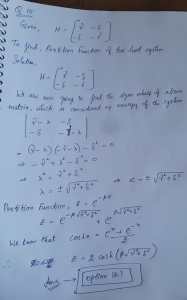 Q.10
Given, H = [γ -δ
-δ -γ]
To find, Partition Function of the system
Solution,
H = [γ -δ
-δ -γ]
We are now going to find the eigen values of above
matrix, which is considered as energy of the system
[γ-λ -δ
-δ -γ-λ]
(γ-λ)(-γ-λ) - δ² = 0
⇒ -γ² + λ² - δ² = 0
⇒ λ² = γ² + δ²
λ = ± √γ²+δ² ⇒ ε = ± √γ²+δ²
Partition Function, Z = e^-βε
Z = e^-β√γ²+δ² + e^β√γ²+δ²
We know that coshx = e^x + e^-x / 2
∴ Z = 2 cosh (β√γ²+δ²)
Ans → option